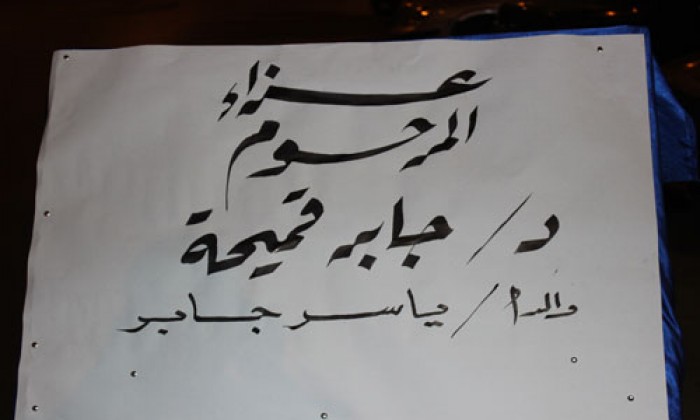 عزاء
المرحوم
د/ جابر قميحة
والد أ/ ياسر جابر